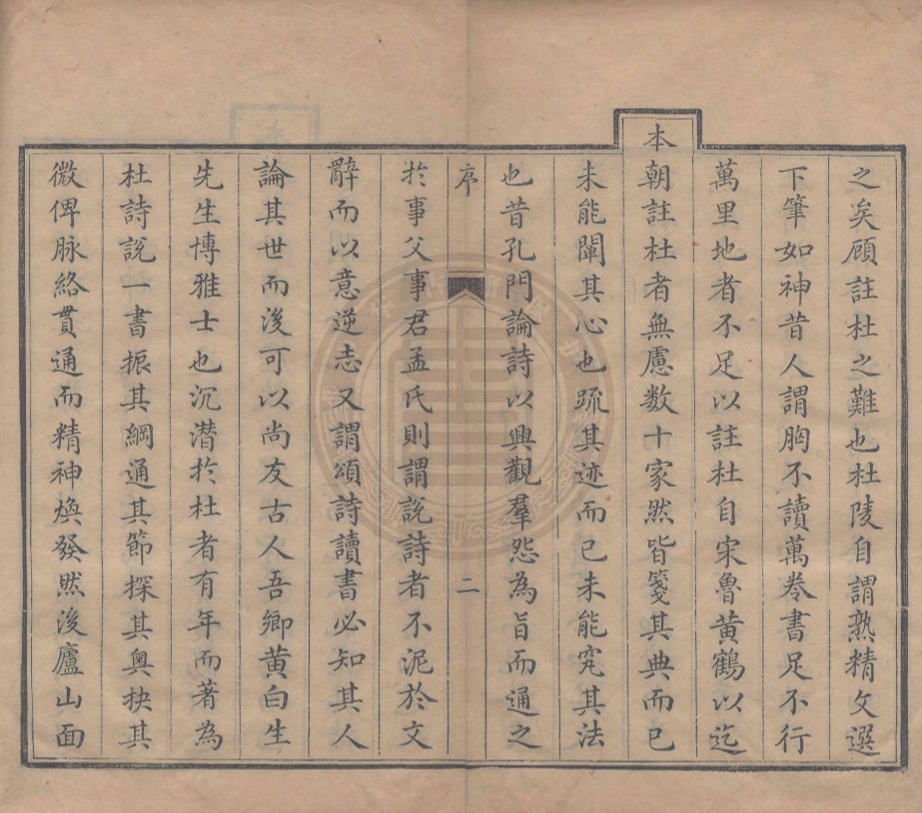 之矣顧註杜之難也杜陵自謂熟精文選
下筆如神昔人謂胸不讀萬卷書足不行
萬里地者不足以註杜自宋魯黃鶴以迄
本朝註杜者無慮数十家然皆箋其典而已
未能闡其心也疏其迹而已未能究其法
也昔孔門論詩以興觀羣怨為旨而通之
序
二
於事父事君孟氏則謂說詩者不泥於文
辭而以意逆志又謂頌詩讀書必知其人
論其世而後可以尚友古人吾鄉黃白生
先生博雅士也沉潛於杜者有年而著為
杜詩說一書振其綱通其節探其奧抉其
微俾脉絡貫通而精神煥發然後廬山面